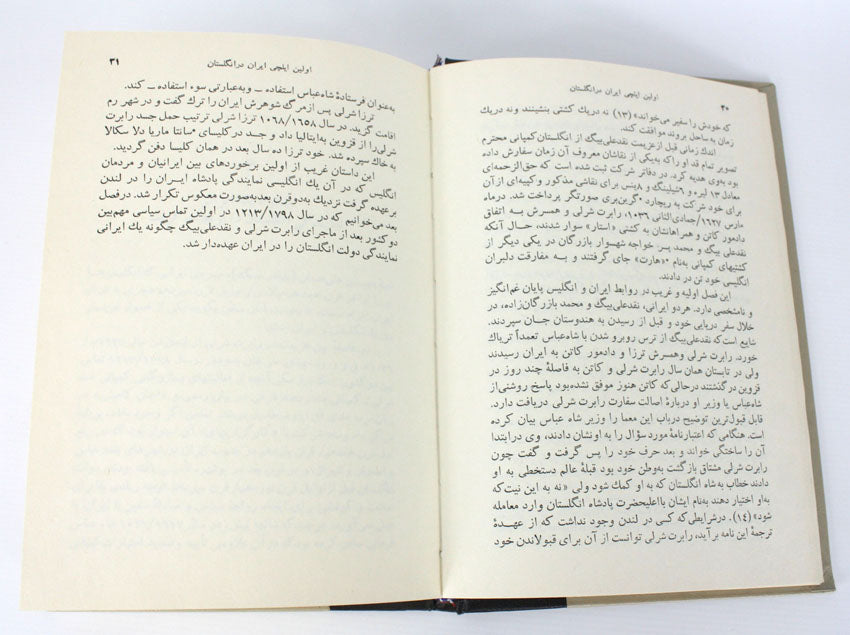 ۲۰ اولین ایلچی ایران درانگلستان
که خودش را سفیر می‌خواند» (۱۳) نه دریك کشتی بنشینند ونه دریك
زمان به ساحل بروند موافقت کند.
اندك زمانی قبل ازعزیمت نقدعلی‌بیگ از انگلستان‌کمپانی محترم
تصویر تمام قد او راکه به‌یکی از نقاشان معروف آن زمان سفارش داده
بود به‌وی هدیه کرد. در دفاتر شرکت ثبت شده است که حق‌الزحمه‌ای
معادل ۱۳ لیره و ۶شیلینگ و ۸پنس برای نقاشی مذکور و کپیه‌ای از آن
برای خود شرکت به ریچارد *گرین‌بری صورتگر پرداخت شد. درماه
مارس ۱۶۲۷/جمادی‌الثانی ۱۰۳۶، رابرت شرلی و همسرش به اتفاق
دادمور کاتن و همراهانشان به کشتی «استار» سوار شدند، حال آنکه
نقدعلی بیگ و محمد پسر خواجه شهسوار بازرگان در یکی دیگر از
کشتیهای کمپانی به‌نام *«هارت» جای گرفتند و به مفارقت دلبران
انگلیسی خود تن در دادند.
این فصل اولیه و غریب در روابط ایران و انگلیس پایان غم‌انگیز
و نامشخصی دارد. هردو ایرانی، نقدعلی‌بیگ و محمد بازرگان‌زاده، در
خلال سفر دریایی خود و قبل از رسیدن به هندوستان جان سپردند.
شایع است‌که نقدعلی‌بیگ از ترس روبرو شدن با شاه‌عباس تعمداً تریاك
خورد. رابرت شرلی وهمسرش ترزا و دادمور کاتن به ایران رسیدند
ولی در تابستان همان سال رابرت شرلی و کاتن به فاصلهٔ چند روز در
قزوین درگذشتند درحالی‌که کاتن هنوز موفق نشده‌بود پاسخ روشنی‌از
شاه‌عباس یا وزیر او دربارهٔ اصالت سفارت رابرت شرلی دریافت دارد.
قابل قبول‌ترین توضیح درباب این معما را وزیر شاه عباس بیان کرده
است. هنگامی که اعتبارنامهٔ مورد سؤال را به اونشان دادند، وی درابتدا
آن را ساختگی خواند و بعد حرف خود را پس گرفت و گفت چون
رابرت شرلی مشتاق بازگشت به‌وطن خود بود قبلهٔ عالم دستخطی به او
دادند خطاب به‌شاه انگلستان که به او کمك شود ولی «نه به این نیت‌که
به‌او اختیار دهند به‌نام ایشان بااعلیحضرت پادشاه انگلستان وارد معامله
شود» (۱۴). درشرایطی‌که کسی در لندن وجود نداشت که از عهدهٔ
ترجمهٔ این نامه برآید، رابرت شرلی توانست از آن برای قبولاندن خود
اولین ایلچی ایران درانگلستان ۳۱
به‌عنوان فرستادهٔ شاه‌عباس استفاده ــ وبه‌عبارتی سوء استفاده ــ کند.
ترزا شرلی پس ازمرگ شوهرش ایران را ترك گفت و در شهر رم
اقامت گزید. در سال ۱۰۶۸/۱۶۵۸ ترزا شرلی ترتیب حمل جسد رابرت
شرلی‌را از قزوین به‌ایتالیا داد و جسد درکلیسای *سانتا ماریا دلا سکالا
به خاك سپرده شد. خود ترزا ده سال بعد در همان کلیسا دفن گردید.
این داستان غریب از اولین برخوردهای بین ایرانیان و مردمان
انگلیس که در آن یك انگلیسی نمایندگی پادشاه ایران را در لندن
برعهده گرفت نزدیك به‌دوقرن بعدبه‌صورت معکوس تکرار شد. درفصل
بعد می‌خوانیم که در سال ۱۲۱۳/۱۷۹۸ در اولین تماس سیاسی مهم‌بین
دوکشور بعد از ماجرای رابرت شرلی و نقدعلی‌بیگ چگونه یك ایرانی
نمایندگی دولت انگلستان را در ایران عهده‌دار شد.